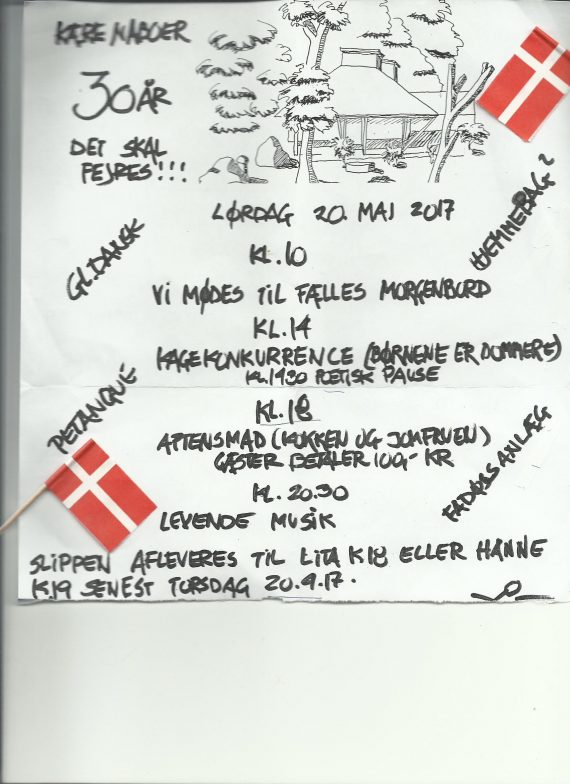 KÆRE NABOER
30 ÅR
DET SKAL
FEJRES!!!
LØRDAG 20. MAJ 2017
GL. DANSK
HJEMMEBAG?
KL. 10
VI MØDES TIL FÆLLES MORGENBORD
KL. 14
KAGEKONKURRENCE (BØRNENE ER DOMMERE)
KL. 1430 POETISK PAUSE
PETANQUE
KL. 18
AFTENSMAD (KOKKEN OG JOMFRUEN)
GÆSTER BETALER 100,- KR
FADØLSANLÆG
KL. 20.30
LEVENDE MUSIK
SLIPPEN AFLEVERES TIL LITA K18 ELLER HANNE
K19 SENEST TORSDAG 20.4.17.